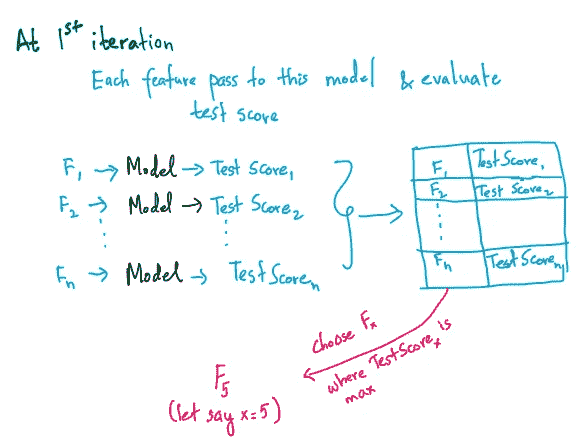 At 1st iteration
Each feature pass to this model & evaluate
test score
F1 → Model → Test Score1
F2 → Model → Test Score2
Fn → Model → Test Scoren
F1 Test Score1
F2 Test Score2
Fn Test Scoren
choose Fx
where TestScorex is
max
F5
(let say x=5)